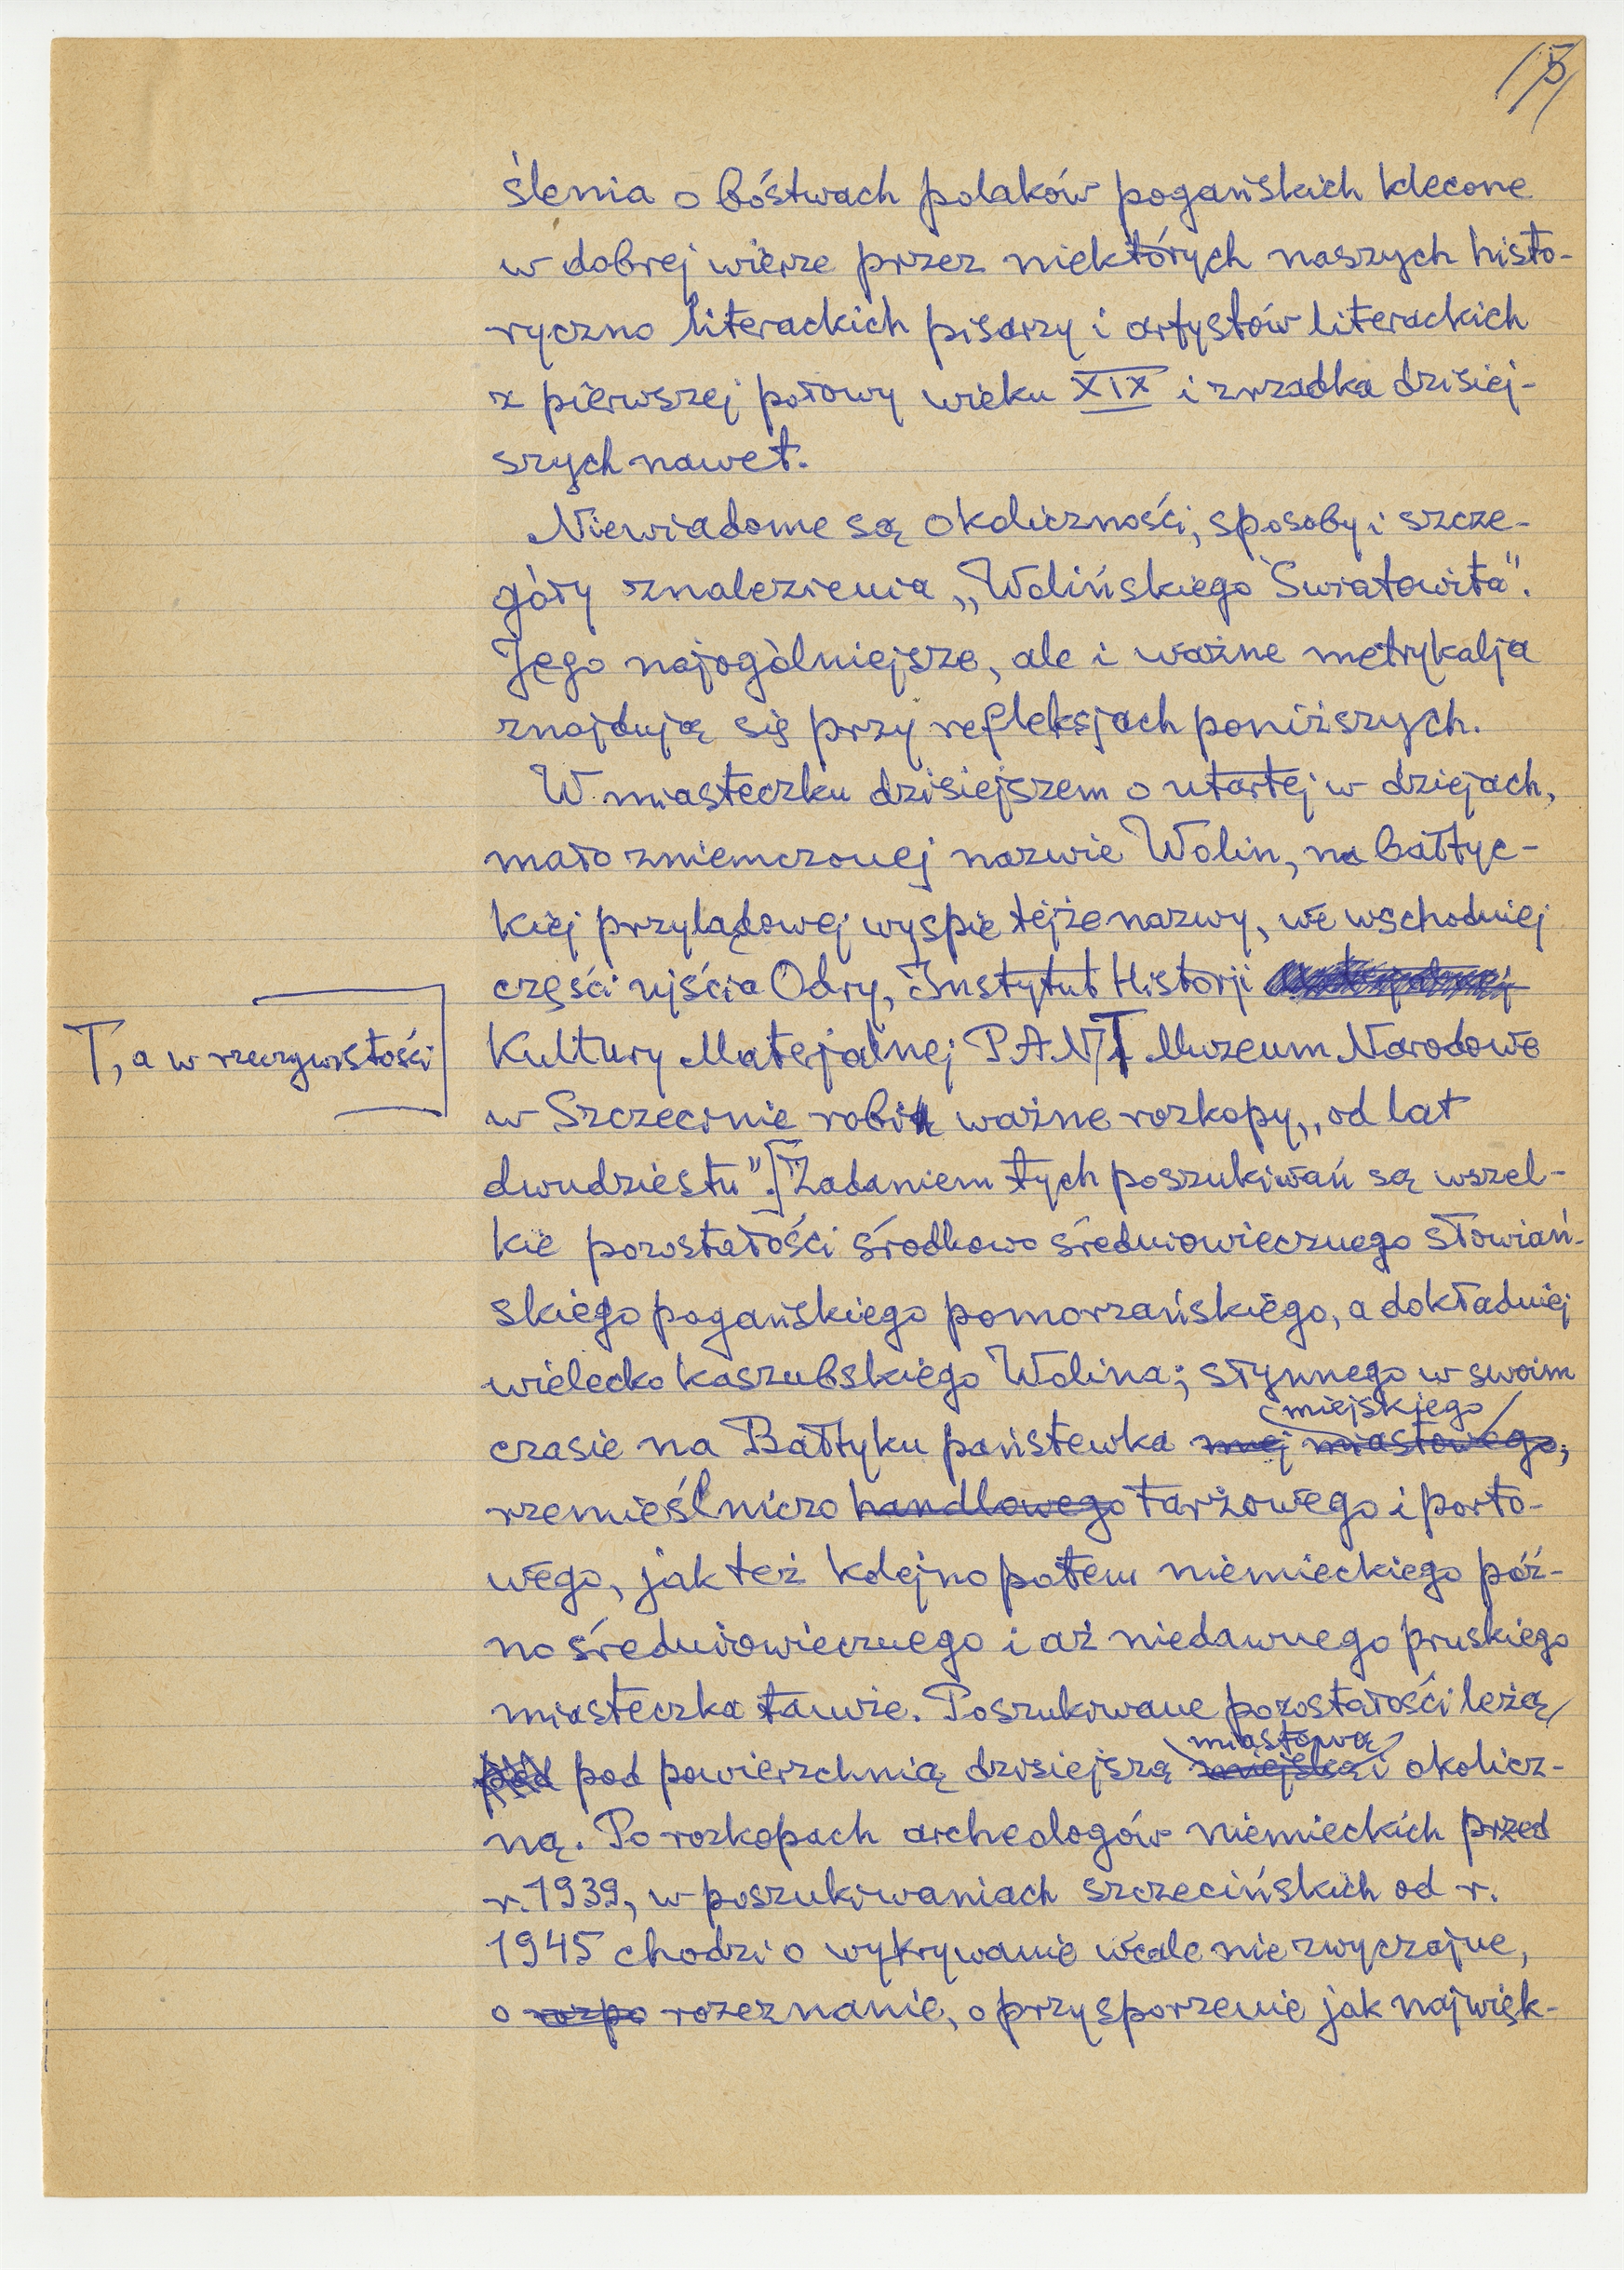 5
ślenia o bóstwach polaków pogańskich klecone
w dobrej wierze przez niektórych naszych histo-
ryczno literackich pisarzy i artystów literackich
z pierwszej połowy wieku XIX i zrzadka dzisiej-
szych nawet.
Niewiadome są okoliczności, sposoby i szcze-
góły znalezienia „Wolińskiego Światowita".
Jego najogólniejsze, ale i ważne metrykalja
znajdują się przy refleksjach poniższych.
W miasteczku dzisiejszem o utartej w dziejach,
mało zniemczonej nazwie Wolin, na bałtyc-
kiej przylądowej wyspie tejże nazwy, we wschodniej
części ujścia Odry, Instytut Historji
T, a w rzeczywistości
Kultury Materjalnej PAN T Muzeum Narodowe
w Szczecinie robi ważne rozkopy, „od lat
dwudziestu". [Zadaniem tych poszukiwań są wszel-
kie pozostałości środkowo średniowiecznego słowiań-
skiego pogańskiego pomorzańskiego, a dokładniej
wielecko kaszubskiego Wolina; słynnego w swoim
miejskiego
czasie na Bałtyku państewka miej miastowego,
rzemieślniczo handlowego tarżowego i porto-
wego, jak też kolejno potem niemieckiego póź-
no średniowiecznego i aż niedawnego pruskiego
miasteczka tamże. Poszukiwane pozostałości leżą
miastową
pod pod powierzchnią dzisiejszą miejską i okolicz-
ną. Po rozkopach archeologów niemieckich przed
r. 1939, w poszukiwaniach szczecińskich od r.
1945 chodzi o wykrywanie wcale niezwyczajne,
o rozpo rozeznanie, o przysporzenie jak najwięk-